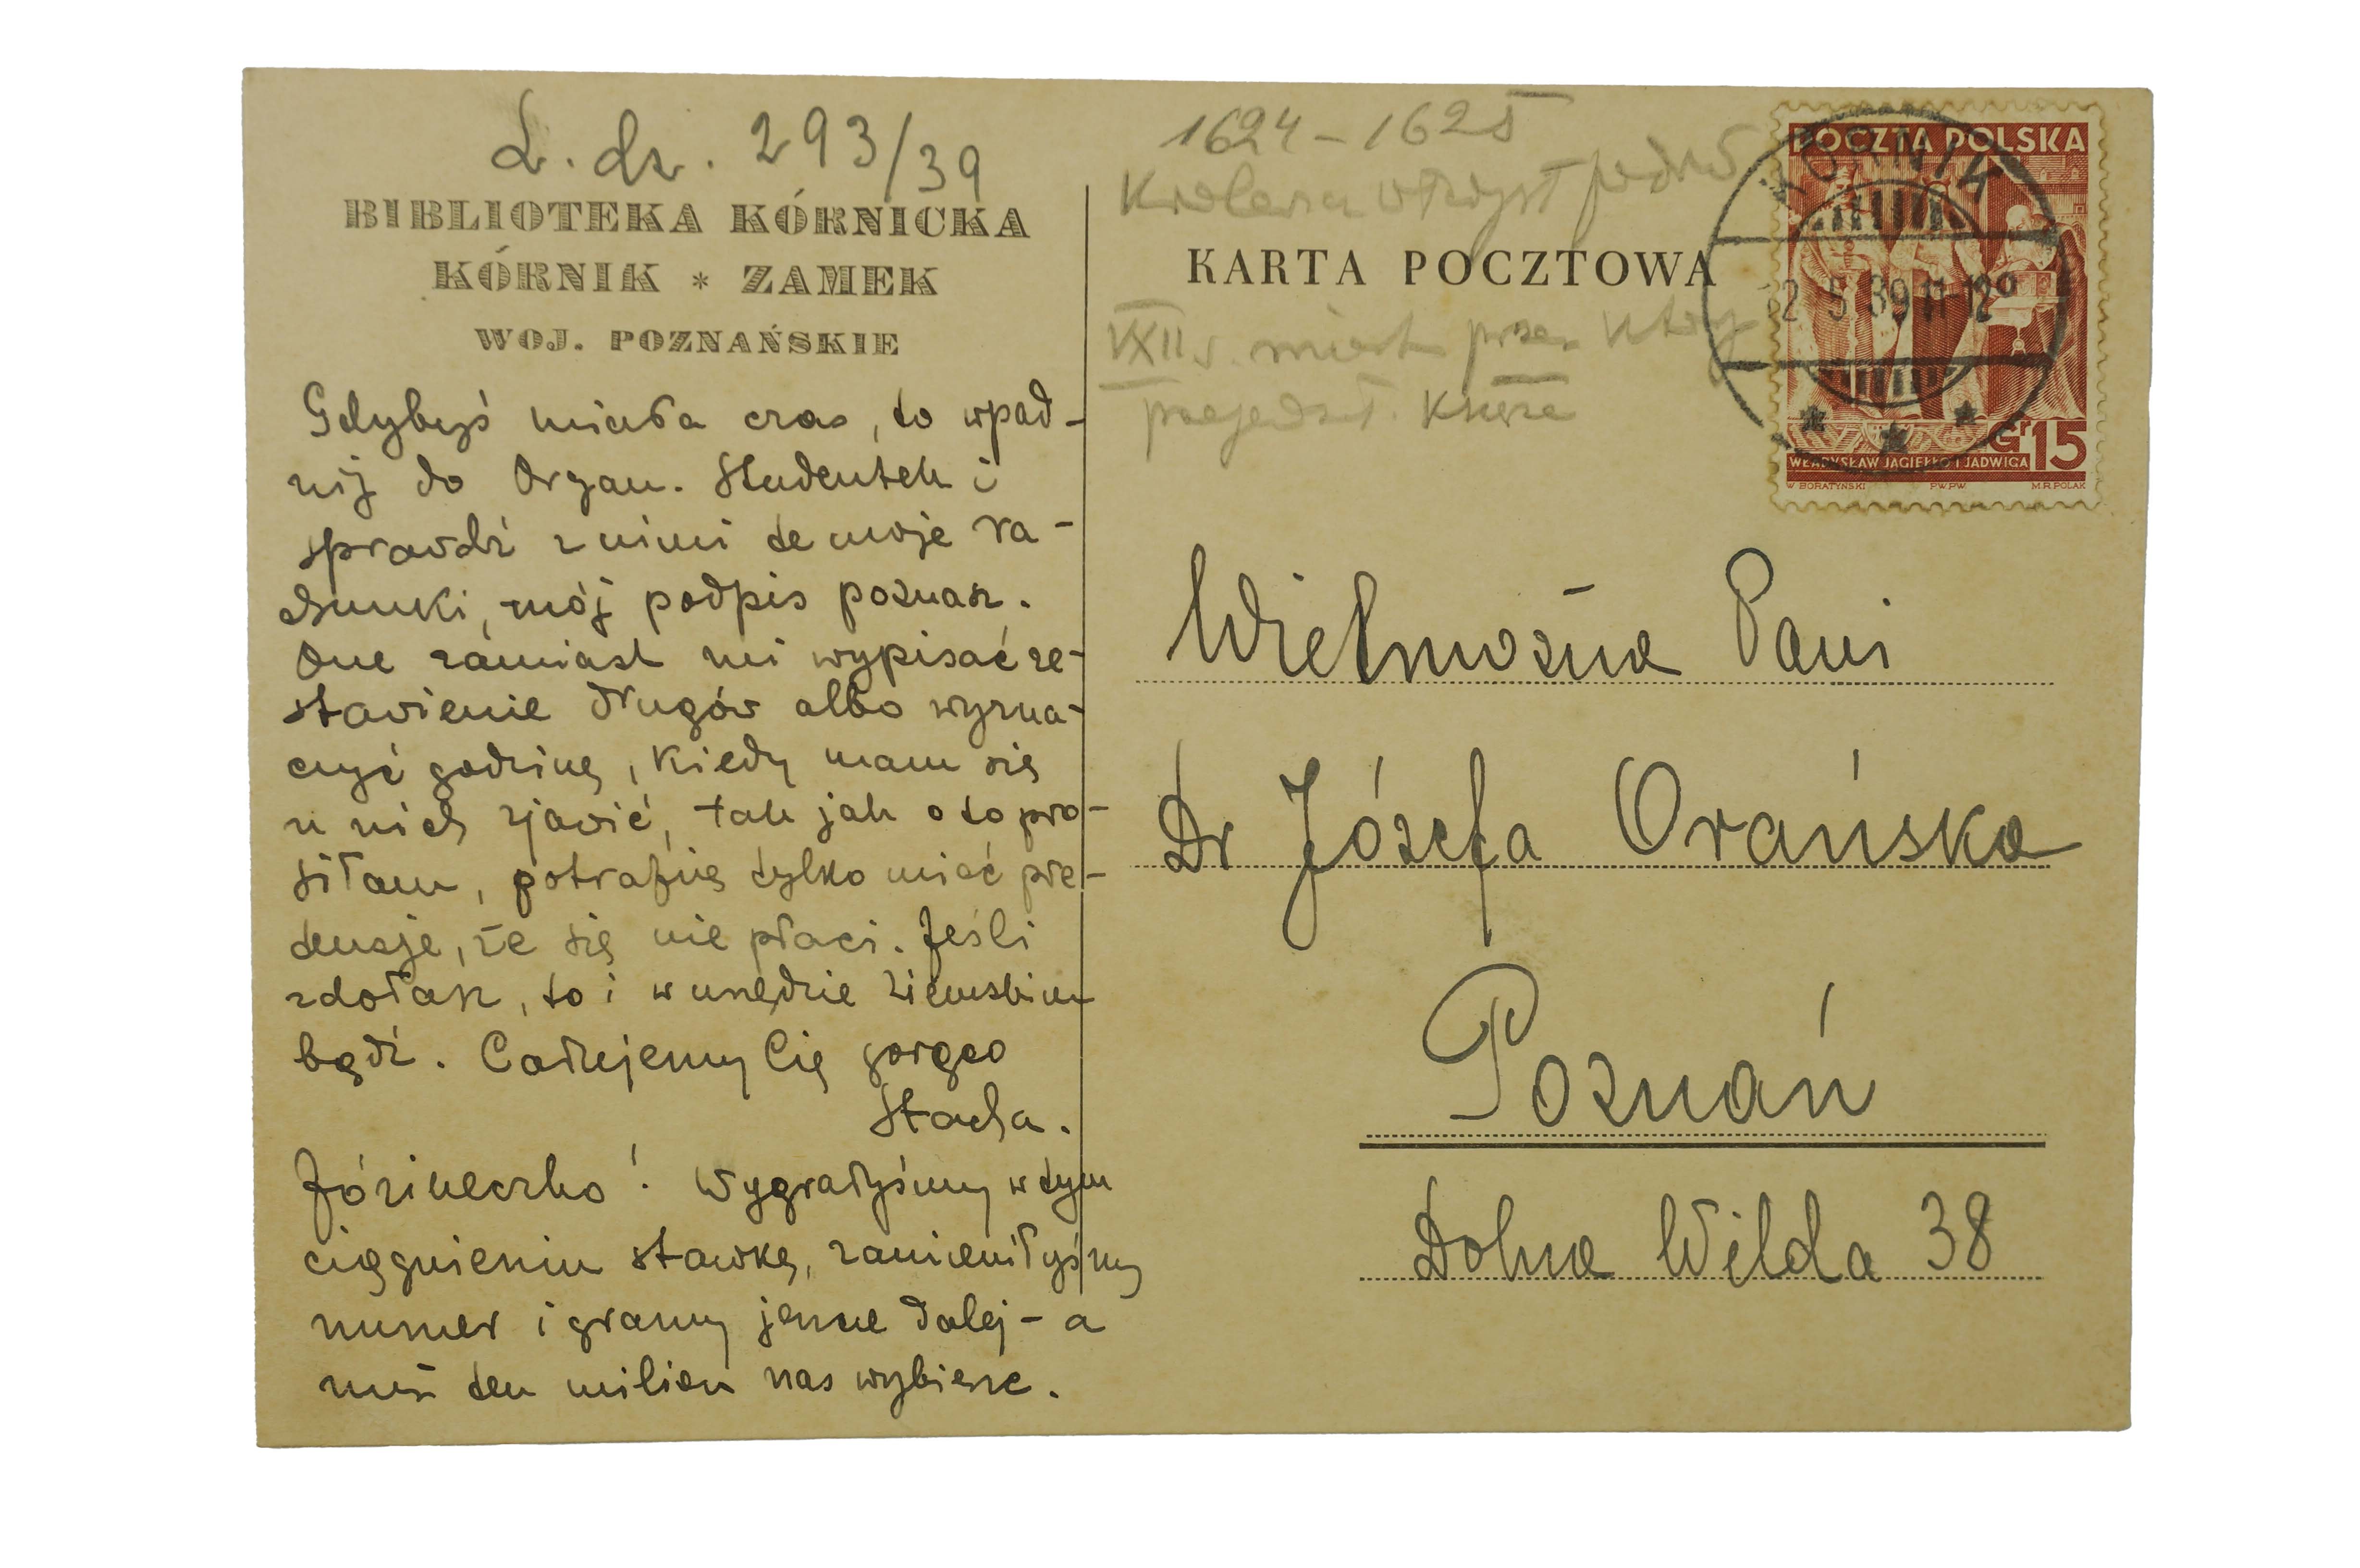 L. dz. 293/39
BIBLIOTEKA KÓRNICKA
KÓRNIK * ZAMEK
WOJ. POZNAŃSKIE
Gdybyś miała czas, to wpad-
nij do Organ. Studentek i
sprawdź z nimi te moje ra-
chunki, mój podpis poznasz.
One zamiast mi wypisać ze-
stawienie długów albo wyzna-
czyć godzinę, kiedy mam się
u nich zjawić, tak jak o to pro-
siłam, potrafią tylko mieć pre-
tensje, że się nie płaci. Jeśli
zdołasz, to i w urzędzie ziemskim
bądź. Całujemy Cię gorąco
Stacha.
Józineczko! Wygrałyśmy w tym
ciągnieniu stawkę, zamieniłyśmy
numer i gramy jeszcze dalej - a
nuż ten milion nas wybierze.
1624 - 1625
KARTA POCZTOWA
POCZTA POLSKA
KÓRNIK
2 5 39 11-12
Gr 15
WŁADYSŁAW JAGIEŁŁO I JADWIGA
W. BORATYŃSKI P.W.P.W. M.R. POLAK
Wielmożna Pani
Dr Józefa Orańska
Poznań
Dolna Wilda 38